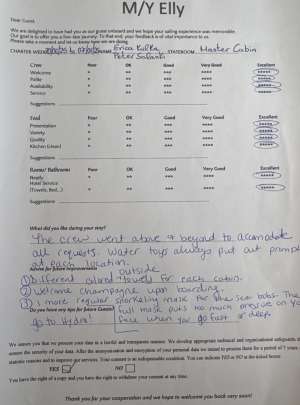 M/Y Elly
Dear Guest,
We are delighted to have had you as our guest onboard and we hope your sailing experience was memorable.
Our goal is to offer you a fine-dear journey. To that end, your feedback is of vital importance to us.
Please take a moment and let us know how we are doing.
CHARTER WEEK to NAME Erica Kulka, STATEROOM Master Cabin
Peter
Crew Poor OK Good Very Good Excellent
Welcome * ** *** **** *****
Polite * ** *** **** *****
Availability * ** *** **** *****
Service * ** *** **** *****
Suggestions
Food Poor OK Good Very Good Excellent
Presentation * ** *** **** *****
Variety * ** *** **** *****
Quality * ** *** **** *****
Kitchen (clean) * ** *** **** *****
Suggestions
Rooms/ Bathrooms Poor OK Good Very Good Excellent
Ready * ** *** **** *****
Hotel Service
(Towels, Bed...) * ** *** **** *****
Suggestions
What did you like during your stay?
The crew went above & beyond to accomodate
all requests. Water toys always put out
at each location.
Advise for future improvements
outside
① Different colored towels for each cabin.
② Welcome champagne upon boarding.
③ 1 more regular snorkeling mask for the sea bobs. The
Do you have any tips for future Guests?
full mask puts too much pressure on
go to Hydra! face when you go fast or deep.
We assure you that we process your data in a lawful and transparent manner. We develop appropriate technical and organizational safeguards
ensure the security of your data. After the anonymization and encryption of your personal data we intend to process them for a period of 7 years,
statistic reasons and to improve our services. Your consent is an indispensable condition. You can indicate YES or NO in the ticked boxes:
YES NO
You have the right of a copy and you have the right to withdraw your consent at any time.
Thank you for your cooperation and we hope to welcome you back very soon!